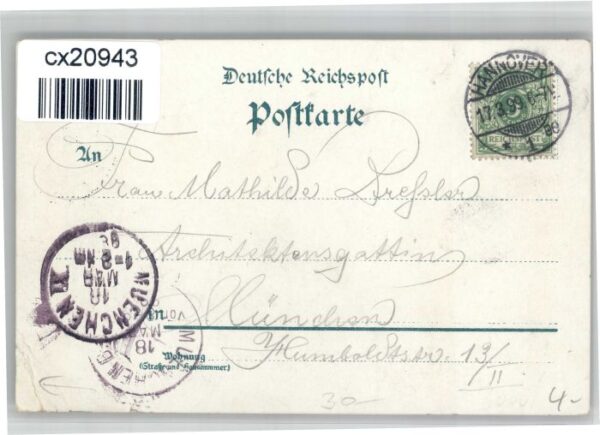 cx20943
Deutsche Reichspost
Postkarte
HANNOVER
17.3.99
REICHSPOST
An
Frau Mathilde Dressler
Architektensgattin
in München
Wohnung
(Straße und Hausnummer)
Humboldtstr 13/II
MUENCHEN II
18
MAR
1-2 NM
MUENCHEN
18
MA
30-
4-